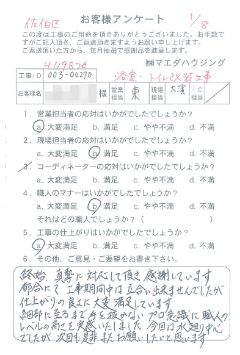 佐伯区
お客様アンケート
1/8
この度は工事のご用命を頂きありがとうございました。お手数で
すがご記入頂き、ご返送頂きますようお願い申し上げます。
ご返送頂いた方から、毎月抽選で感謝品を進呈します。
㈱マエダハウジング
工事ID
003-00270
浴室・トイレ改装工事
お客様名
様
営業担当
東
現場担当
大濱
1. 営業担当者の応対はいかがでしたでしょうか?
a. 大変満足 b. 満足 c. やや不満 d. 不満
2. 現場担当者の応対はいかがでしたでしょうか?
a. 大変満足 b. 満足 c. やや不満 d. 不満
3. コーディネーターの応対はいかがでしたでしょうか?
a. 大変満足 b. 満足 c. やや不満 d. 不満
4. 職人のマナーはいかがでしたでしょうか?
a. 大変満足 b. 満足 c. やや不満 d. 不満
それはどの職人でしょうか? ( )
5. 工事の仕上がりはいかがでしたでしょうか?
a. 大変満足 b. 満足 c. やや不満 d. 不満
6. その他、ご意見・ご要望をお書き下さい。
終始、真摯に対応して頂き感謝しています
都合にて工事期間中は立会い出来ませんでしたが
仕上がりの良さに大変満足しています
細部に至るまで手を抜かない、プロ意識と職人の
レベルの高さを実感いたしました 今回は水廻り中心
でしたが 次回も是非お願いしたいと思います